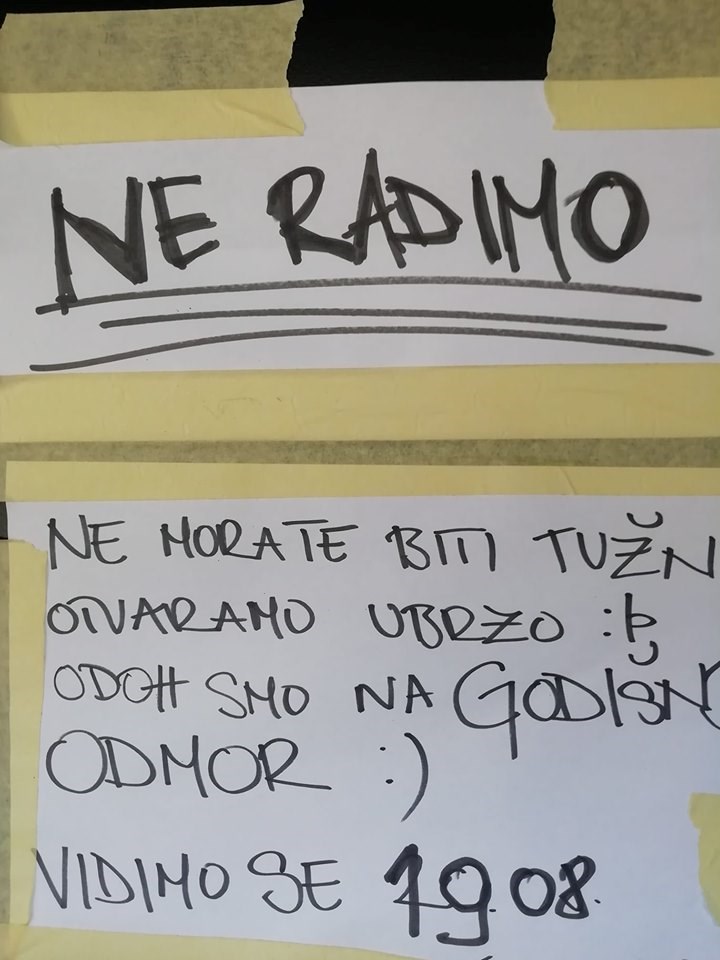 NE RADIMO
NE MORATE BITI TUŽN
OTVARAMO UBRZO :Þ
ODOH SMO NA GODIŠN
ODMOR :)
VIDIMO SE 19.08.